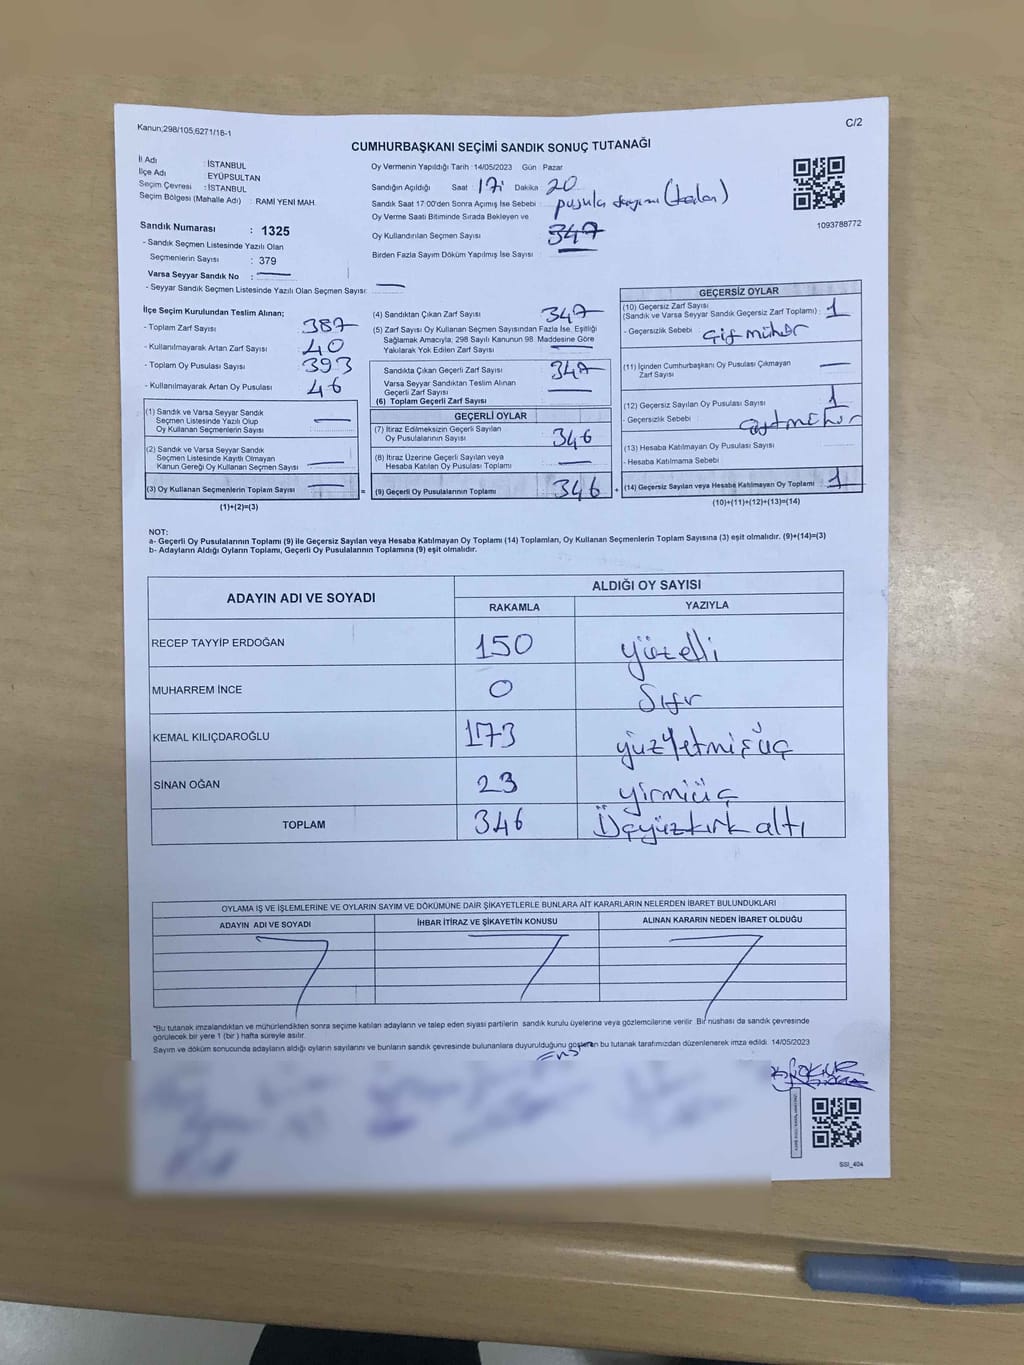 Kanun;298/105;6271/18-1
C/2
CUMHURBAŞKANI SEÇİMİ SANDIK SONUÇ TUTANAĞI
İl Adı : İSTANBUL
İlçe Adı : EYÜPSULTAN
Seçim Çevresi : İSTANBUL
Seçim Bölgesi (Mahalle Adı) : RAMİ YENİ MAH.
Sandık Numarası : 1325
- Sandık Seçmen Listesinde Yazılı Olan
Seçmenlerin Sayısı : 379
Varsa Seyyar Sandık No :
- Seyyar Sandık Seçmen Listesinde Yazılı Olan Seçmen Sayısı:
Oy Vermenin Yapıldığı Tarih :14/05/2023 Gün Pazar
Sandığın Açıldığı Saat : 17: Dakika 20
Sandık Saat 17:00'den Sonra Açımış İse Sebebi : pusula sayımı
Oy Verme Saati Bitiminde Sırada Bekleyen ve
Oy Kullandırılan Seçmen Sayısı 347
Birden Fazla Sayım Döküm Yapılmış İse Sayısı
1093788772
İlçe Seçim Kurulundan Teslim Alınan;
- Toplam Zarf Sayısı 387
- Kullanılmayarak Artan Zarf Sayısı 40
- Toplam Oy Pusulası Sayısı 393
- Kullanılmayarak Artan Oy Pusulası 46
(1) Sandık ve Varsa Seyyar Sandık
Seçmen Listesinde Yazılı Olup
Oy Kullanan Seçmenlerin Sayısı
(2) Sandık ve Varsa Seyyar Sandık
Seçmen Listesinde Kayıtlı Olmayan
Kanun Gereği Oy Kullanan Seçmen Sayısı
(3) Oy Kullanan Seçmenlerin Toplam Sayısı
(1)+(2)=(3)
(4) Sandıktan Çıkan Zarf Sayısı 347
(5) Zarf Sayısı Oy Kullanan Seçmen Sayısından Fazla İse, Eşitliği
Sağlamak Amacıyla; 298 Sayılı Kanunun 98. Maddesine Göre
Yakılarak Yok Edilen Zarf Sayısı
Sandıkta Çıkan Geçerli Zarf Sayısı 347
Varsa Seyyar Sandıktan Teslim Alınan
Geçerli Zarf Sayısı
(6) Toplam Geçerli Zarf Sayısı
GEÇERLİ OYLAR
(7) İtiraz Edilmeksizin Geçerli Sayılan
Oy Pusulalarının Sayısı 346
(8) İtiraz Üzerine Geçerli Sayılan veya
Hesaba Katılan Oy Pusulası Toplamı
= (9) Geçerli Oy Pusulalarının Toplamı 346 +
GEÇERSİZ OYLAR
(10) Geçersiz Zarf Sayısı
(Sandık ve Varsa Seyyar Sandık Geçersiz Zarf Toplamı) : 1
- Geçersizlik Sebebi : Çift mühür
(11) İçinden Cumhurbaşkanı Oy Pusulası Çıkmayan
Zarf Sayısı
(12) Geçersiz Sayılan Oy Pusulası Sayısı 1
- Geçersizlik Sebebi : çift mühür
(13) Hesaba Katılmayan Oy Pusulası Sayısı
- Hesaba Katılmama Sebebi
(14) Geçersiz Sayılan veya Hesaba Katılmayan Oy Toplamı : 1
(10)+(11)+(12)+(13)=(14)
NOT:
a- Geçerli Oy Pusulalarının Toplamı (9) ile Geçersiz Sayılan veya Hesaba Katılmayan Oy Toplamı (14) Toplamları, Oy Kullanan Seçmenlerin Toplam Sayısına (3) eşit olmalıdır. (9)+(14)=(3)
b- Adayların Aldığı Oyların Toplamı, Geçerli Oy Pusulalarının Toplamına (9) eşit olmalıdır.
ADAYIN ADI VE SOYADI
ALDIĞI OY SAYISI
RAKAMLA YAZIYLA
RECEP TAYYİP ERDOĞAN 150 yüzelli
MUHARREM İNCE 0 Sıfır
KEMAL KILIÇDAROĞLU 173 yüzYetmişüç
SİNAN OĞAN 23 yirmiüç
TOPLAM 346 Üçyüzkırk altı
OYLAMA İŞ VE İŞLEMLERİNE VE OYLARIN SAYIM VE DÖKÜMÜNE DAİR ŞİKAYETLERLE BUNLARA AİT KARARLARIN NELERDEN İBARET BULUNDUKLARI
ADAYIN ADI VE SOYADI İHBAR İTİRAZ VE ŞİKAYETİN KONUSU ALINAN KARARIN NEDEN İBARET OLDUĞU
*Bu tutanak imzalandıktan ve mühürlendikten sonra seçime katılan adayların ve talep eden siyasi partilerin sandık kurulu üyelerine veya gözlemcilerine verilir. Bir nüshası da sandık çevresinde
görülecek bir yere 1 (bir) hafta süreyle asılır.
Sayım ve döküm sonucunda adayların aldığı oyların sayılarını ve bunların sandık çevresinde bulunanlara duyurulduğunu gösteren bu tutanak tarafımızdan düzenlenerek imza edildi. 14/05/2023
SSI_404